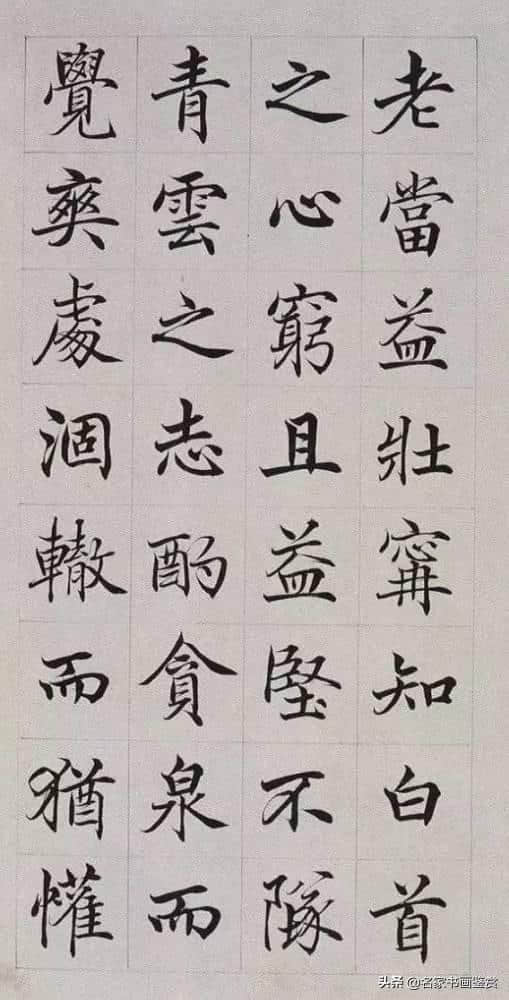 老當益壯寗知白首
之心窮且益堅不隊
青雲之志酌貪泉而
覺爽處涸轍而猶懽
头条 @名家书画鉴赏